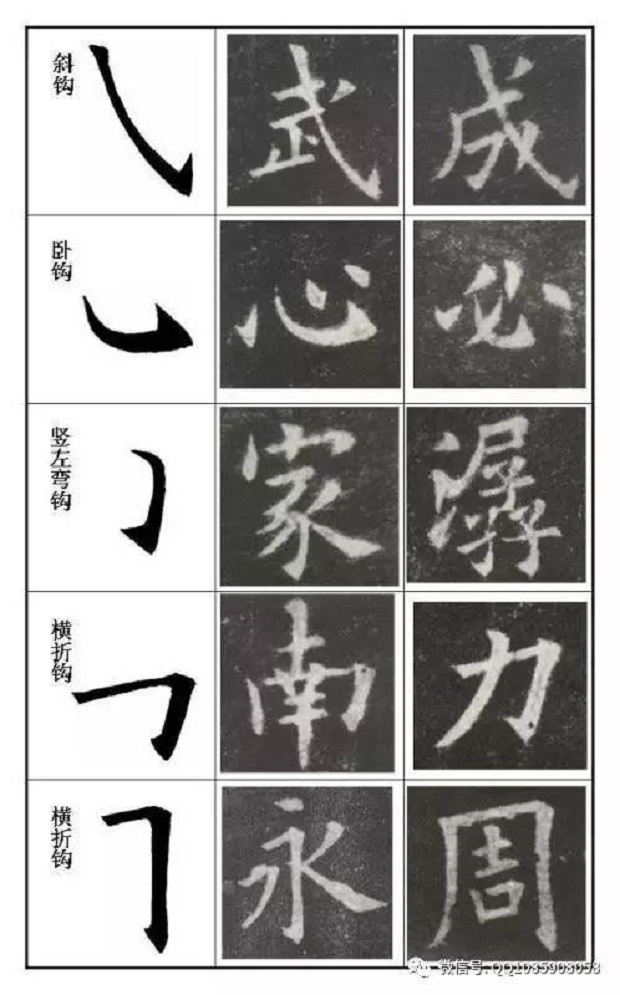 斜钩
武 成
卧钩
心 必
竖左弯钩
家 潺
横折钩
南 力
横折钩
永 周
微信号: QQ1085908058